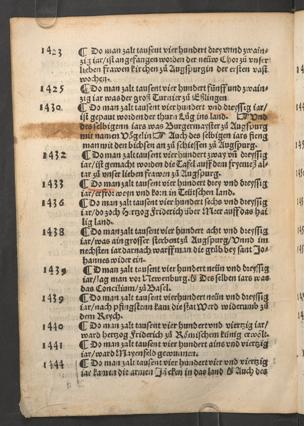 1423 ¶ Do man zalt tausent vier hundert drey vnnd zwain-
zig iar/ist angefangen worden der neüw Chor zů vnser
lieben frawen kirchen zů Augspurg in der ersten vast
wochen.
1425 ¶ Do man zalt tausent vier hundert fünff vnd zwain-
zig iar was der groß Turnier zů Eßlingen.
1430. ¶ Do man zalt tausent vier hundert vnd dreyssig iar/
ist gepaut worden der thurn Lůg ins land. ¶ Vnd
des selbigenn iars was Burgermayster zů Augspurg
mit namen Vögelin ¶ Auch des selbigen iars fieng
man mit den bichsen an zů schiessen zů Augspurg.
1432 ¶ Do man zalt tausent vier hundert zway vnd dreyssig
iar/ist gemacht worden die Tafel auff dem
tar zů vnser lieben frawen zů Augspurg.
1433 ¶ Do man zalt tausent vier hundert drey vnd dreyssig
iar/ wein vnd korn in Teütschen land.
1436 ¶ Do man zalt tausent vier hundert sechs vnd dreyssig
iar/do zoch Hertzog Friderich über Meer auff das hai
lig land.
1438 ¶ Do man zalt tausent vier hundert acht vnd dreyssig
iar/was ain grosser sterbent zů Augspurg/Vnnd im
nechsten iar darnach warff man die grůb bey sant Jo-
hannes wider ein.
1439 ¶ Do man zalt tausent vier hundert neün vnd dreyssig
iar/lag man vor Des selben iars was
das Concilium/zů Basel.
1439 ¶ Do man zalt tausent vierhundert neün vnd dreyssig
iar/nach pfingsten kam die stat Werd widerumb zů
dem Reych.
1440 ¶ Do man zalt tausent vier hundert vnd viertzig iar/
ward hertzog Friderich zů Römischem künig erwölt.
1441 ¶ Do man zalt tausent vier hundert ains vnd viertzig
iar/ward Mayenfeld gewunnen.
1444 ¶ Do man zalt tausent vier hundert vier vnd viertzig
iar kamen die armen Jäcken in das land ¶ Auch des